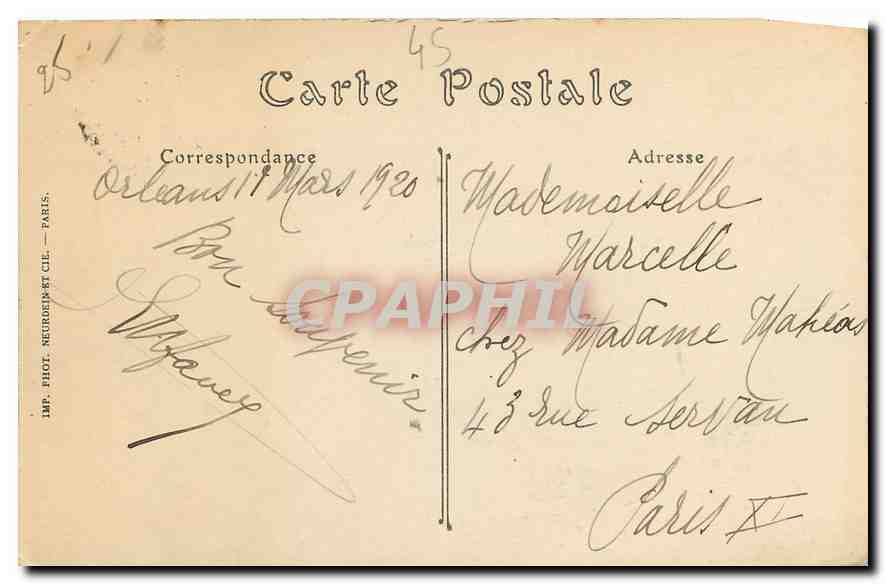 45
Carte Postale
Correspondance
Orléans 19 Mars 1920
Bon souvenir
Adresse
Mademoiselle
Marcelle
chez Madame Mahéas
43 rue Servan
Paris XI
IMP. PHOT. NEURDEIN ET CIE. — PARIS.
CPAPHIL